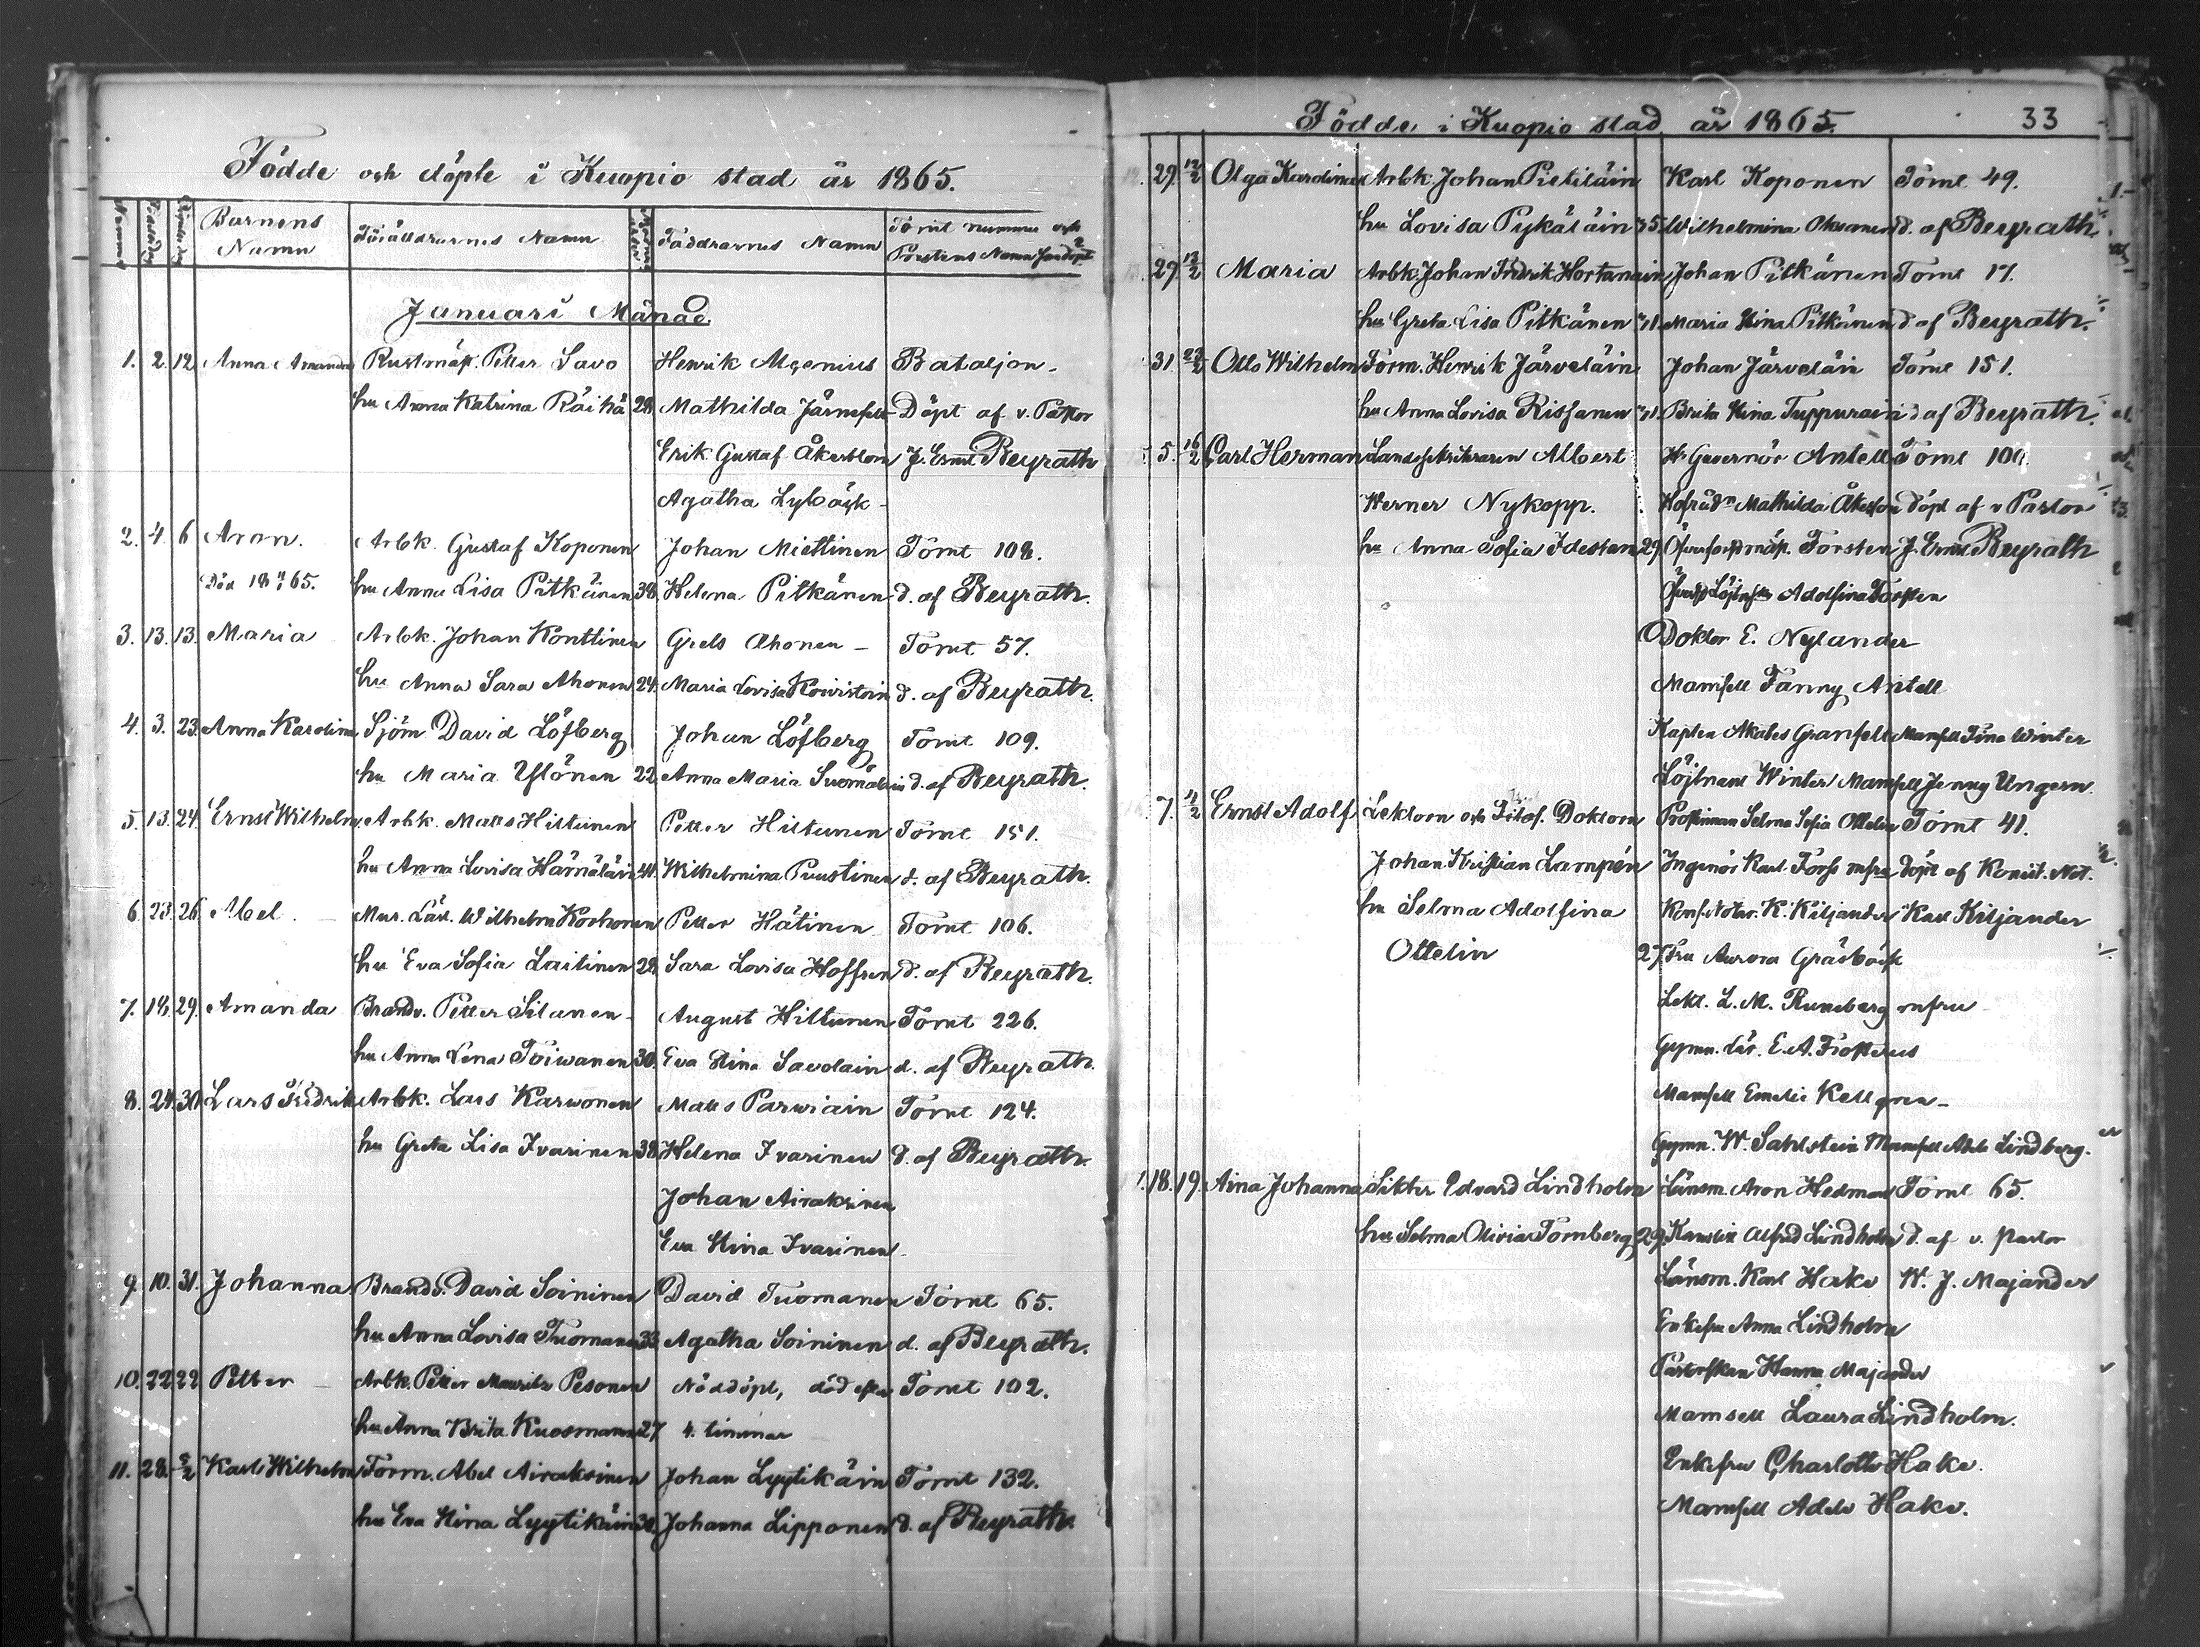 Födde och döpte i Kuopio stad år 1865.
Barnens Namn
Föräldrarnes Namn
Faddrarnes Namn
Tomt nummer och Prestens Namn som döpt
Januari Månad.
1. 2. 12. Anna Amanda Rustmäst. Petter Savo Henrik Alcenius Bataljon.
hu Anna Katrina Räihä 28. Mathilda Järnefelt Döpt af v. Pastor
Erik Gustaf Åkerblom J. Ernst Beyrath
Agatha Lybäck
2. 4. 6. Aron. Arbk. Gustaf Koponen Johan Miettinen Tomt 108.
Död 65. hu Anna Lisa Pitkänen 38. Helena Pitkänen d. af Beyrath.
3. 13. 13. Maria Arbk. Johan Konttinen Grels Ahonen Tomt 57.
hu Anna Sara Ahonen 24. Maria Lovisa Koivistoin d. af Beyrath.
4. 3. 23. Anna Karolina Sjöm. David Löfberg Johan Löfberg Tomt 109.
hu Maria Ylönen 22. Anna Maria Suomalain d. af Beyrath.
5. 13. 24. Ernst Wilhelm Arbk. Matts Hiltunen Petter Hiltunen Tomt 151.
hu Anna Lovisa Hämäläin 41. Wilhelmina Puustinen d. af Beyrath.
6. 23. 26. Abel Mur. Lärl. Wilhelm Korhonen Petter Hätinen Tomt 106.
hu Eva Sofia Laitinen 29. Sara Lovisa Hoffren d. af Beyrath.
7. 18. 29. Amanda Brandv. Petter Silanen August Hiltunen Tomt 226.
hu Anna Lena Toiwanen 30. Eva Stina Savolain d. af Beyrath.
8. 24. 30. Lars Fredrik Arbk. Lars Karwonen Matts Parwiain Tomt 124.
hu Greta Lisa Ivarinen 38. Helena Ivarinen d. af Beyrath.
Johan Airaksinen
Eva Stina Ivarinen
9. 10. 31. Johanna Brandv. David Soininen David Tuomanen Tomt 65.
hu Anna Lovisa Tuomanen 33. Agatha Soininen d. af Beyrath.
10. 22. 22. Petter Arbk. Petter Mauritz Pesonen Nöddöpt, död efter Tomt 102.
hu Anna Brita Kuosmanen 27 4. timmar
11. 28. 2/2 Karl Wilhelm Form. Abel Airaksinen Johan Lyytikäin Tomt 132.
hu Eva Stina Lyytikäin 30. Johanna Lipponen d. af Beyrath.
Födde i Kuopio stad år 1865. 33
29. 12/2 Olga Karolina Arbk Johan Pietiläin Karl Koponen Tomt 49.
hu Lovisa Pykäläin 35. Wilhelmina Oksanen d. af Beyrath.
27. 12/2 Maria Arbk. Johan Fredrik Hortanain Johan Pitkänen Tomt 17.
hu Greta Lisa Pitkänen Maria Stina Pitkänen d af Beyrath.
31. Otto Wilhelm Form. Henrik Järveläin Johan Järveläin Tomt 151.
hu Anna Lovisa Rissanen Brita Stina Tuppurain d af Beyrath.
5. 16/2 Carl Herman Landssekreteraren Albert Hr Guvernör Antell Tomt
Werner Nykopp. Hofrådn Mathilda Åkesson Döpt af v Pastor
hu Anna Sofia Idestam 29. Öfverforstmäst. Forsten J. Ernst Beyrath
Adolfina Forsten
Doktor E. Nylander
Mamsell Fanny Antell
Kapten Akates Granfelt Mamsell Fina Winter
Löjtnant Winter Mamsell Jenny Ungern
7. Ernst Adolf Lektorn och Filos. Doktorn Prostinnan Selma Sofia Ottelin Tomt 41.
Johan Kristian Lampén Ingeniör Karl Forss mfru Döpt af Konsist. Not.
hu Selma Adolfina Kons. Notar. K. Kiljander Karl Kiljander
Ottelin 27. Fru Aurora Gräsbäck
Lekt. L. M. Runeberg mfru
Gymn. lär. E. A. Forsterus
Mamsell Emelie Kellgren
Gymn. W. Sahlstein Mamsell Adele Lindberg.
18. 19. Aina Johanna Sikter Edvard Lindholm Länsm. Aron Hedman Tomt 65.
hu Selma Olivia Tornberg 29. Kanslist Alfred Lindholm d. af v. Pastor
Länsm. Karl Hake W. J. Majander
Enkefru Anna Lindholm
Pastorskan Hanna Majander
Mamsell Laura Lindholm.
Enkefru Charlotte Hake.
Mamsell Adele Hake.